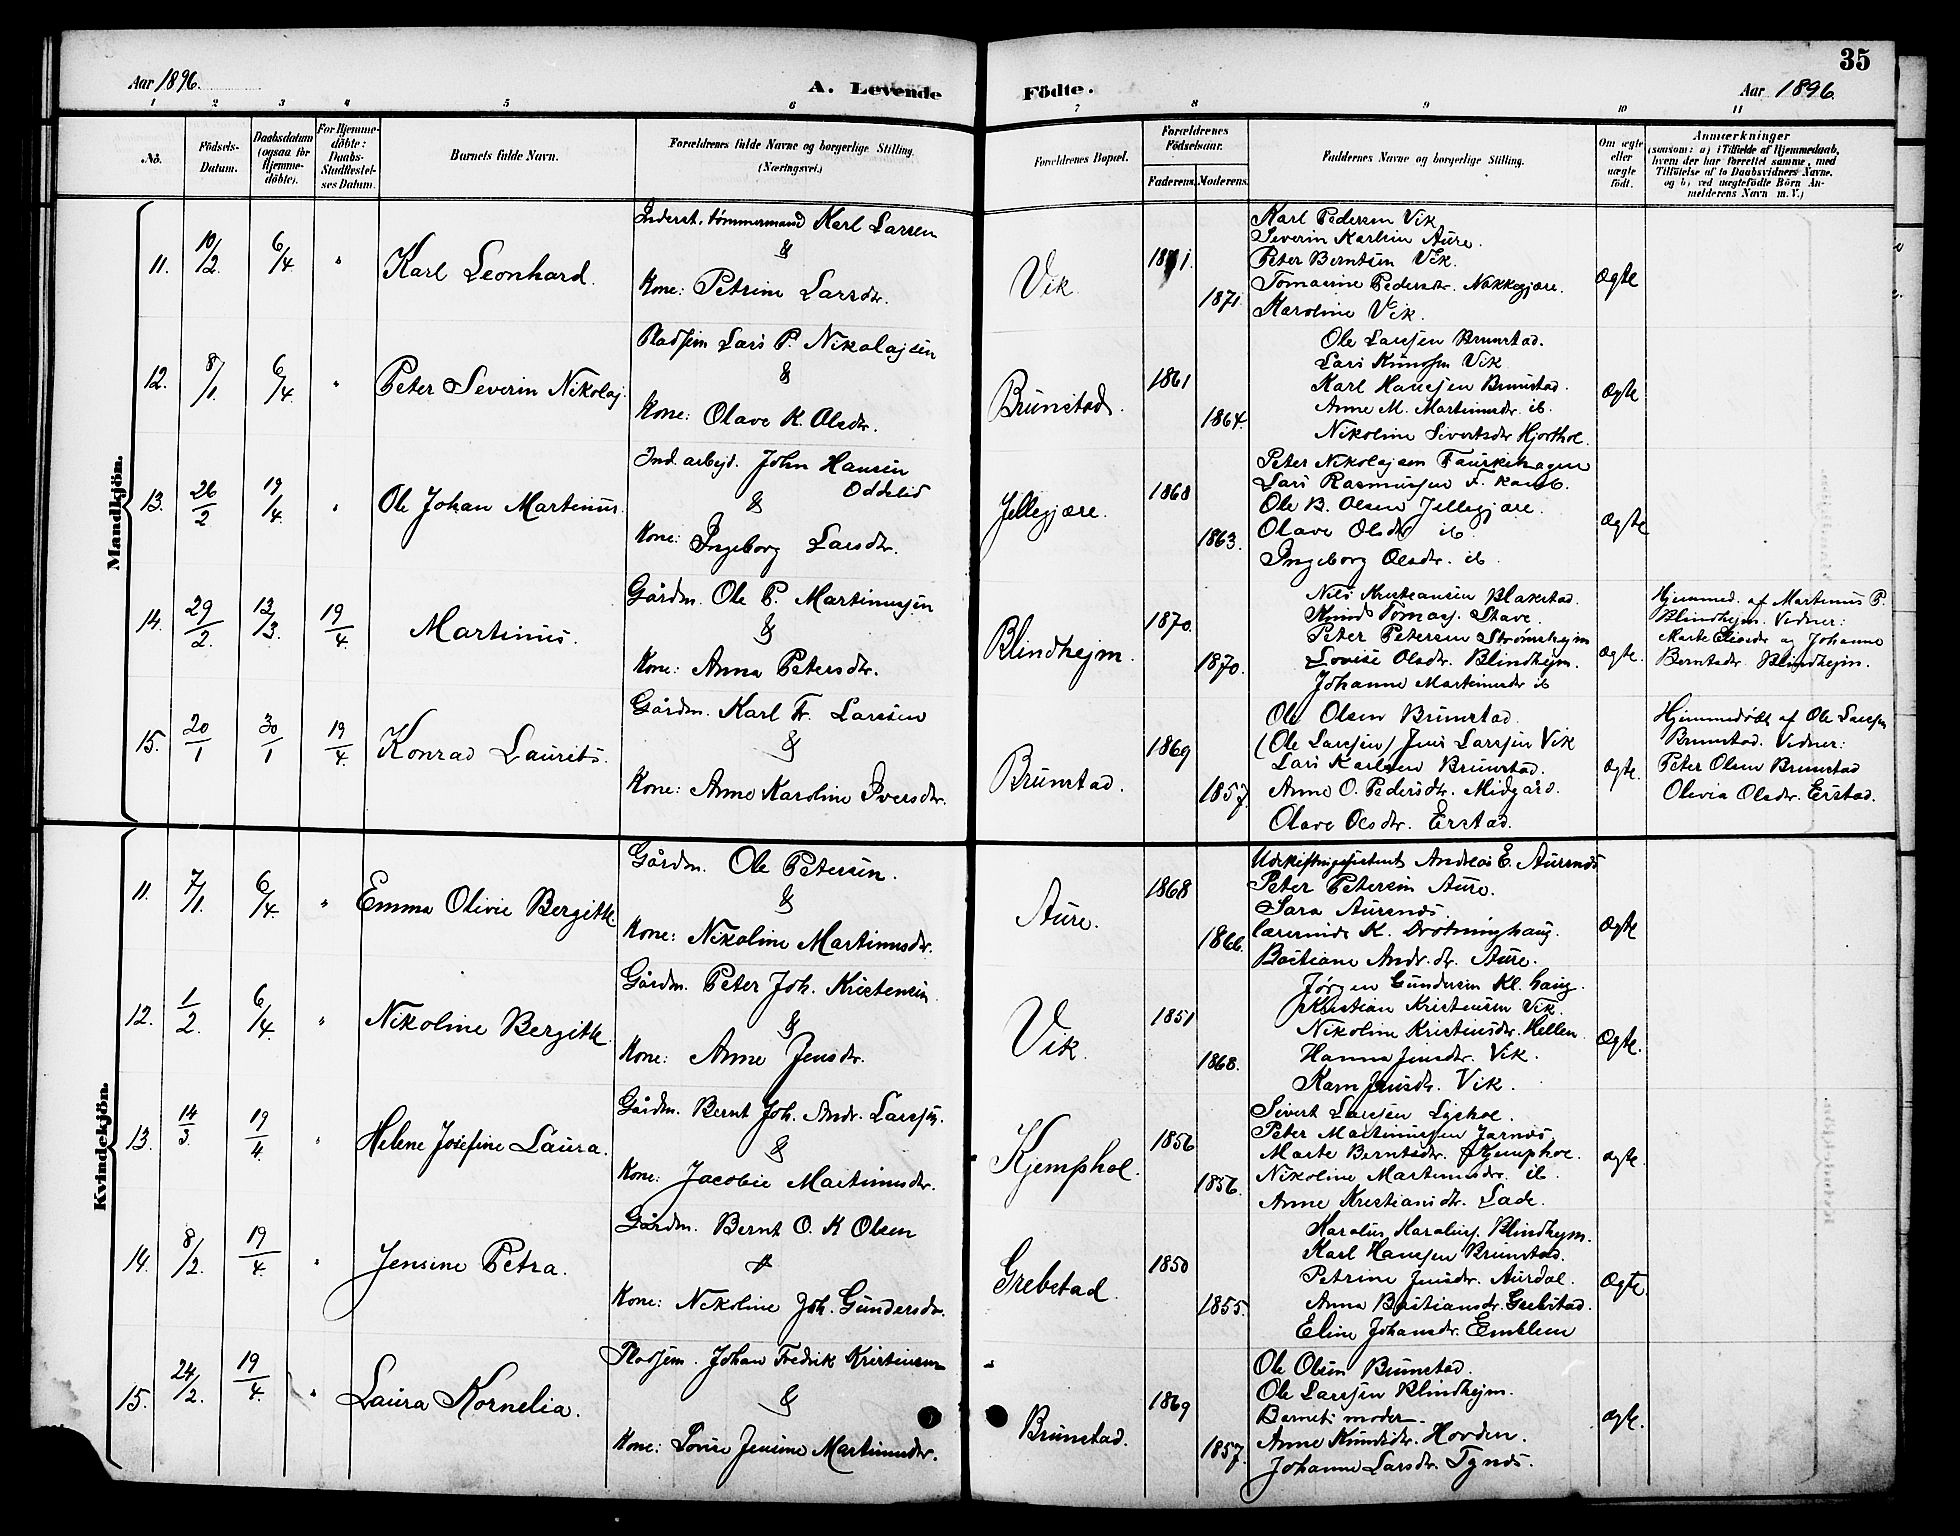 35
Aar 1896. A. Levende Födte. Aar 1896.
1 2 3 4 5 6 7 8 9 10 11
No.
Födsels-Datum.
Daabsdatum (ogsaa for Hjemme-döbte).
For Hjemme-döbte: Daabs-Stadfæstel-ses Datum.
Barnets fulde Navn.
Forældrenes fulde Navne og borgerlige Stilling. (Næringsvei.)
Forældrenes Bopæl.
Forældrenes Födselsaar.
Faderens. Moderens.
Faddernes Navne og borgerlige Stilling.
Om ægte eller uægte födt.
Anmærkninger
(saasom: a) i Tilfælde af Hjemmedaab, hvem der har forrettet samme, med Tilföielse af to Daabsvidners Navne, og b) ved uægtefödte Börn An-melderens Navn m. V.)
Mandkjön.
11. 10/2 6/4 " Karl Leonhard.
Inderst. tömmermand Karl Larsen
&
Kone: Petrine Larsdtr.
Vik. 1871. 1871.
Karl Pedersen Vik
Severin Karlsen Aure.
Peter Berntsen Vik.
Tomasine Pedersdtr. Nakkegjære.
Karoline Vik.
Ægte
12. 8/1. 6/4. " Peter Severin Nikolaj.
Pladsem Lars P. Nikolajsen
&
Kone: Olave K. Olsdtr.
Brunstad. 1861 1864.
Ole Larssen Brunstad.
Lars Knudsen Vik
Karl Hanssen Brunstad.
Anne M. Martinusdtr. ib.
Nikoline Sivertsdtr Hjorthol.
Ægte
13. 26/2 19/4. " Ole Johan Martinus.
Ind. arbejd. John Hansen
Oddelid
&
Kone: Ingeborg Larsdtr.
Jellegjære. 1868 1863.
Peter Nikolajsen Fauskehagen
Lars Rasmussen
Ole B. Olsen Jellegjære.
Olave Olsdtr ib.
Ingeborg Olsdtr. ib
Ægte
14. 29/2. 13/3. 19/4. Martinus.
Gårdm. Ole P. Martinussen
&
Kone: Anna Petersdtr.
Blindhejm. 1870. 1870.
Nils Kristiansen Blakstad.
Knud Tomasj. Stave.
Peter Petersen Strömshejm
Lovise Olsdtr. Blindhejm.
Johanne Martinusdtr ib
Ægte.
Hjemmed. af Martinus P.
Blindhejm. Vidner:
Marte Eliasdtr og Johanne
Berntsdtr. Blindhejm.
15. 20/1 30/1 19/4. Konrad Laurits.
Gårdm. Karl Fr. Larssen
&
Kone: Anne Karoline Iversdtr.
Brunstad. 1869 1857.
Ole Olsen Brunstad.
(Ole Larssen) Jens Larssen Vik
Lars Karlsen Brunstad.
Anne O. Pedersdtr. Midgård.
Olave Olsdtr. Erstad.
Ægte.
Hjemmedöbt af Ole Larssen
Brunstad. Vidner:
Peter Olsen Brunstad
Olivia Olsdtr. Erstad.
Kvindekjön.
11. 7/1. 6/4. " Emma Olivie Bergitte.
Gårdm. Ole Petersen.
&
Kone: Nikoline Martinusdtr.
Aure. 1868 1866.
Andreas E. Aurenes
Peter Petersen Aure.
Sara Aurenes.
lærerinde K. Drotninghaug.
Bastiane Andr. dtr. Aure.
Ægte
12. 1/2. 6/4. " Nikoline Bergitte.
Gårdm. Peter Joh. Kristensen
&
Kone: Anne Jensdtr.
Vik. 1851 1868.
Jörgen Gundersen Kl. haug.
Kristian Kristensen Vik.
Nikoline Kristensdtr. Hellen
Hanna Jensdtr. Vik.
Karn Jensdtr. Vik.
Ægte.
13. 14/3. 19/4. " Helene Josefine Laura.
Gårdm. Bernt Joh. Andr. Larssen.
&
Kone: Jacobie Martinusdtr.
Kjemphol. 1856 1856.
Sivert Larssen Lyshol.
Peter Martinussen Jarnes
Marte Berntsdtr. Kjemphol.
Nikoline Martinusdtr. ib.
Anne Kristiansdtr. Lade.
Ægte.
14. 8/2. 19/4. " Jensine Petra.
Gårdm. Bernt O. K Olsen
&
Kone: Nikoline Joh. Gundersdtr.
Grebstad. 1850 1855.
Haralus Haralusj. Blindhejm.
Karl Hanssen Brunstad.
Petrine Jensdtr. Aurdal.
Anna Bastiansdtr. Grebstad.
Eline Johansdtr. Emblem
Ægte.
15. 24/2. 19/4. " Laura Kornelia.
Pladsem. Johan Fredrik Kristensen
&
Kone: Lovise Jensine Martinusdtr.
Brunstad. 1869 1857.
Ole Olsen Brunstad.
Ole Larssen Blindhejm.
Barnets moder.
Anne Knudsdtr. Hovden.
Johanne Larsdtr. Tynes.
Ægte.